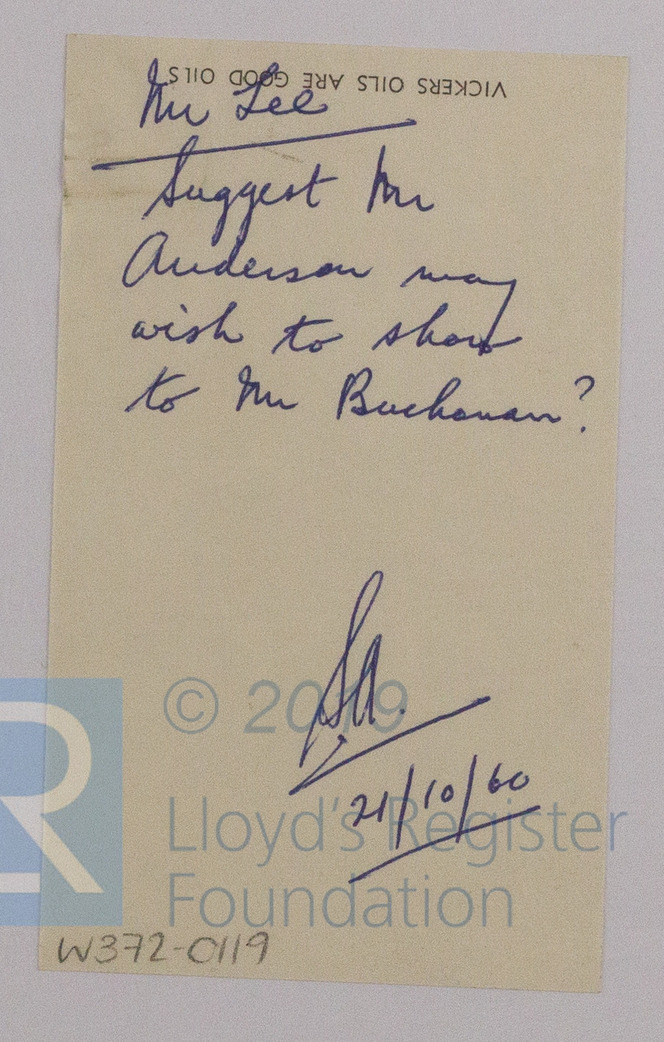 VICKERS OILS ARE GOOD OILS
Mr Lee
Suggest Mr
Anderson may
wish to show
to Mr Buchanan?
SA.
21/10/60
© 2019
Lloyd's Register
Foundation
W372-0119